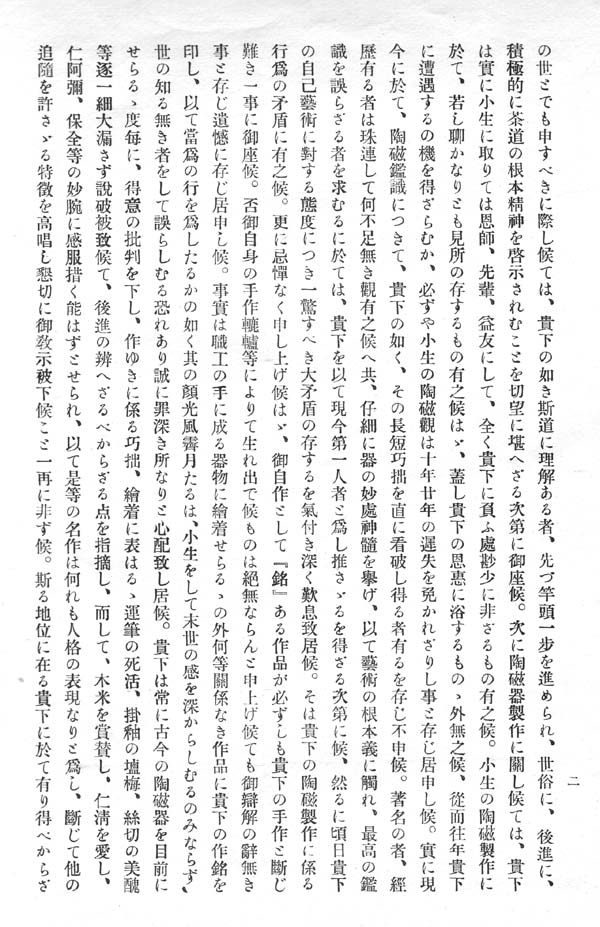 二
の世とでも申すべきに際し候ては、貴下の如き斯道に理解ある者、先づ竿頭一步を進められ、世俗に、後進に、
積極的に茶道の根本精神を啓示されむことを切望に堪へざる次第に御座候。次に陶磁器製作に關し候ては、貴下
は實に小生に取りては恩師、先輩、益友にして、全く貴下に負ふ處尠少に非ざるもの有之候。小生の陶磁製作に
於て、若し聊かなりとも見所の存するもの有之候はゞ、蓋し貴下の恩惠に浴するものゝ外無之候、從而往年貴下
に遭遇するの機を得ざらむか、必ずや小生の陶磁觀は十年廿年の遲失を免かれざりし事と存じ居申し候。實に現
今に於て、陶磁鑑識につきて、貴下の如く、その長短巧拙を直に看破し得る者有るを存じ不申候。著名の者、經
歷有る者は珠連して何不足無き觀有之候へ共、仔細に器の妙處神髓を擧げ、以て藝術の根本義に觸れ、最高の鑑
識を誤らざる者を求むるに於ては、貴下を以て現今第一人者と爲し推さゞるを得ざる次第に候、然るに頃日貴下
の自己藝術に對する態度につき一驚すべき大矛盾の存するを氣付き深く歎息致居候。そは貴下の陶磁製作に係る
行爲の矛盾に有之候。更に忌憚なく申し上げ候はゞ、御自作として『銘』ある作品が必ずしも貴下の手作と斷じ
難き一事に御座候。否御自身の手作轆轤等によりて生れ出で候ものは絕無ならんと申上げ候ても御辯解の辭無き
事と存じ遺憾に存じ居申し候。事實は職工の手に成る器物に繪着せらるゝの外何等關係なき作品に貴下の作銘を
印し、以て當爲の行を爲したるかの如く其の顏光風霽月たるは、小生をして末世の感を深からしむるのみならず、
世の知る無き者をして誤らしむる恐れあり誠に罪深き所なりと心配致し居候。貴下は常に古今の陶磁器を目前に
せらるゝ度每に、得意の批判を下し、作ゆきに係る巧拙、繪着に表はるゝ運筆の死活、掛釉の塩梅、絲切の美醜
等逐一細大漏さず說破被致候て、後進の辨へざるべからざる点を指摘し、而して、木米を賞讃し、仁淸を愛し、
仁阿彌、保全等の妙腕に感服措く能はずとせられ、以て是等の名作は何れも人格の表現なりと爲し、斷じて他の
追隨を許さゞる特徵を高唱し懇切に御敎示被下候こと一再に非ず候。斯る地位に在る貴下に於て有り得べからざ